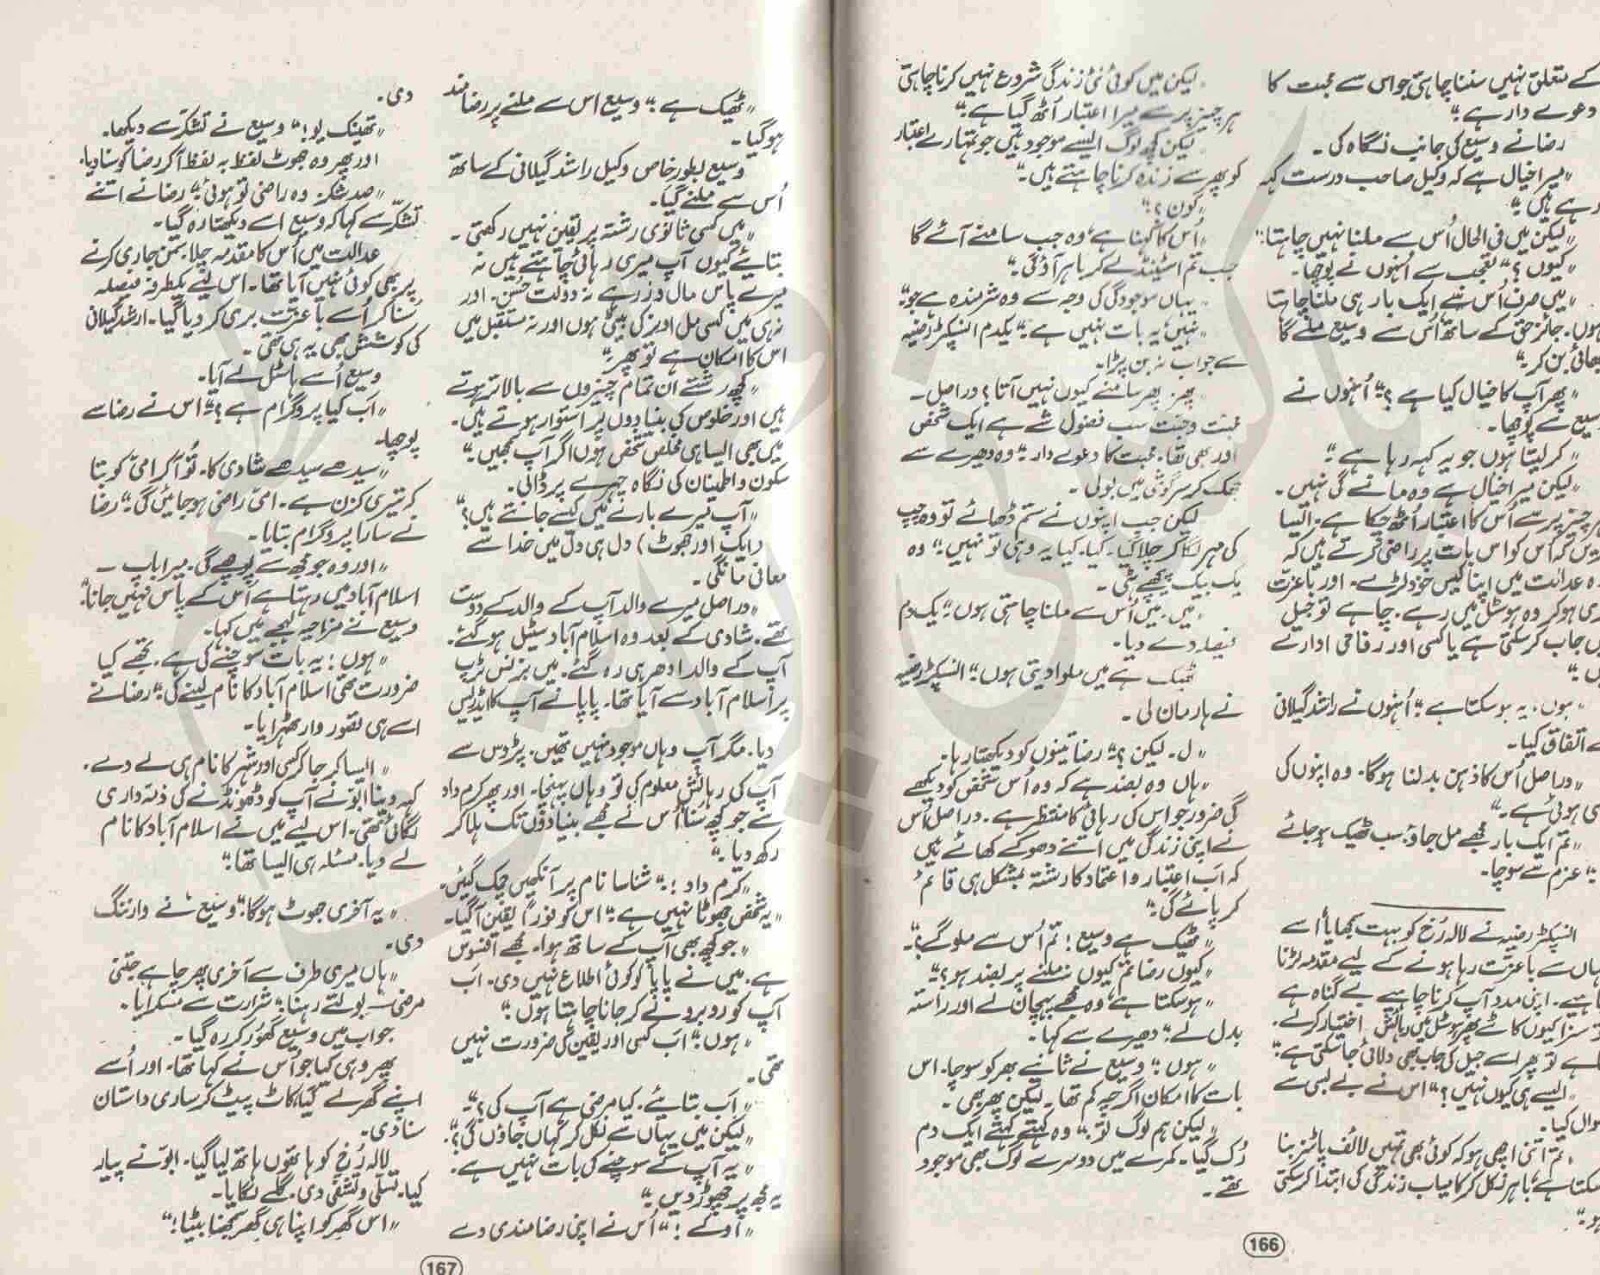 کے متعلق نہیں سننا چاہتی جو اس سے محبت کا
دعوے دار ہے"
رضا نے وسیع کی جانب نگاہ کی۔
"میرا خیال ہے کہ وکیل صاحب درست کہہ
رہے ہیں"
"لیکن میں فی الحال اُس سے ملنا نہیں چاہتا"
"کیوں؟" تعجب سے اُنہوں نے پوچھا۔
"میں صرف اُس سے ایک بار ہی ملنا چاہتا
ہوں۔ جائز حق کے ساتھ اُس سے وسیع ملے گا
بھائی بن کر"
"پھر آپ کا خیال کیا ہے؟" اُنہوں نے
وسیع سے پوچھا۔
"کر لیتا ہوں جو یہ کہہ رہا ہے"
"لیکن میرا خیال ہے وہ مانے گی نہیں۔
ہر چیز پر سے اُس کا اعتبار اُٹھ چکا ہے۔ ایسا
کریں کہ اُس کو اس بات پر راضی کرتے ہیں کہ
وہ عدالت میں اپنا کیس خود لڑے۔ اور باعزت
بری ہو کر وہ ہوسٹل میں رہے۔ چاہے تو جیل
میں جاب کر سکتی ہے یا کسی اور رفاعی ادارے
میں"
"ہوں، یہ ہو سکتا ہے" اُنہوں نے راشد گیلانی
سے اتفاق کیا۔
"دراصل اُس کا ذہن بدلنا ہوگا۔ وہ اپنوں کی
ہوئی ہے۔"
"تم ایک بار مجھے مل جاؤ، سب ٹھیک ہو جائے
" عزم سے سوچا۔
انسپکٹر رضیہ نے لالہ رُخ کو بہت سمجھایا، اُسے
یہاں سے باعزت رہا ہونے کے لیے مقدمہ لڑنا
چاہیے۔ اپنی مدد آپ کرنا چاہیے بے گناہ ہے
تو سزا کیوں کاٹے پھر ہوسٹل میں رہائش اختیار کرلے۔
چاہے تو پھر اسے جیل کی جاب بھی دلائی جا سکتی ہے"
"ایسے ہی کیوں نہیں؟" اس نے بے بسی سے
سوال کیا۔
"تم اتنی اچھی ہو کہ کوئی بھی تمہیں لائف پارٹنر بنا
سکتا ہے، باہر نکل کر کامیاب زندگی کی ابتدا کر سکتی
ہو"
"لیکن میں کوئی نئی زندگی شروع نہیں کرنا چاہتی
ہر چیز پر سے میرا اعتبار اُٹھ گیا ہے"
"لیکن کچھ لوگ ایسے موجود ہیں جو تمہارے اعتبار
کو پھر سے زندہ کرنا چاہتے ہیں"
"کون؟"
"اُس کا کہنا ہے، وہ جب سامنے آئے گا
جب تم اسٹینڈ لے کر باہر آؤ گی"
"یہاں موجودگی کی وجہ سے وہ شرمندہ ہے جو"
"نہیں یہ بات نہیں ہے" یکدم انسپکٹر رضیہ
سے جواب نہ بن پڑا۔
"پھر، پھر سامنے کیوں نہیں آتا؟ دراصل۔
محبت وحبت سب فضول شے ہے ایک شخص
اور بھی تھا۔ محبت کا دعوے دار" وہ دھیرے سے
جھک کر سرگوشی میں بولی۔
لیکن جب اپنوں نے ستم ڈھائے تو وہ چپ
کی مہر لگا کر چلا گیا۔ کیا، کیا یہ وہی تو نہیں" وہ
یک بیک پیچھے ہٹی۔
"میں، میں اُس سے ملنا چاہتی ہوں" یکدم
فیصلہ دے دیا۔
"ٹھیک ہے میں ملوا دیتی ہوں" انسپکٹر رضیہ
نے ہار مان لی۔
"ل۔ لیکن؟" رضا تینوں کو دیکھتا رہا۔
"ہاں وہ بضد ہے کہ وہ اُس شخص کو دیکھے
گی ضرور جو اس کی رہائی کا منتظر ہے۔ دراصل اُس
نے اپنی زندگی میں اتنے دھوکے کھائے ہیں
کہ اب اعتبار و اعتماد کا رشتہ بمشکل ہی قائم
کر پائے گی"
"ٹھیک ہے وسیع! تم اُس سے ملو گے؟"
"کیوں رضا تم کیوں نہ ملنے پر بضد ہو؟"
"ہوسکتا ہے، وہ مجھے پہچان لے اور راستہ
بدل لے" دھیرے سے کہا۔
"ہوں" وسیع نے ثانیے بھر کو سوچا۔ اس
بات کا امکان اگرچہ کم تھا۔ لیکن پھر بھی۔
"لیکن ہم لوگ تو" وہ کہتے کہتے ایک دم
رُک گیا۔ کمرے میں دوسرے لوگ بھی موجود
تھے۔
166
"ٹھیک ہے" وسیع اس سے ملنے پر رضا مند
ہوگیا۔
وسیع بطور خاص وکیل راشد گیلانی کے ساتھ
اُس سے ملنے گیا۔
"میں کسی ثانوی رشتہ پر یقین نہیں رکھتی۔
بتائیے کیوں آپ میری رہائی چاہتے ہیں نہ
میرے پاس مال و زر ہے نہ دولت حُسن۔ اور
نہ ہی میں کسی مل اونر کی بیٹی ہوں اور نہ مستقبل میں
اس کا امکان ہے تو پھر"
"کچھ رشتے ان تمام چیزوں سے بالاتر ہوتے
ہیں اور خلوص کی بنیادوں پر استوار ہوتے ہیں۔
میں بھی ایسا ہی مخلص شخص ہوں اگر آپ سمجھیں"
سکون و اطمینان کی نگاہ چہرے پر ڈالی۔
"آپ میرے بارے میں کیسے جانتے ہیں؟"
(ایک اور جھوٹ) دل ہی دل میں خدا سے
معافی مانگی۔
"دراصل میرے والد آپ کے والد کے دوست
تھے۔ شادی کے بعد وہ اسلام آباد سیٹل ہوگئے۔
آپ کے والد ادھر ہی رہ گئے۔ میں بزنس ٹرپ
پر اسلام آباد سے آیا تھا۔ پاپا نے آپ کا ایڈریس
دیا۔ مگر آپ وہاں موجود نہیں تھیں۔ پڑوس سے
آپ کی رہائش معلوم کی تو وہاں پہنچا۔ اور پھر کرم داد
سے جو کچھ سنا، اُس نے مجھے بنیادوں تک ہلا کر
رکھ دیا۔"
"کرم داد!" شناسا نام پر آنکھیں چمک گئیں۔
"یہ شخص جھوٹا نہیں ہے" اس کو فوراً یقین آگیا۔
"جو کچھ بھی آپ کے ساتھ ہوا۔ مجھے افسوس
ہے۔ میں نے پاپا کو کوئی اطلاع نہیں دی۔ اب
آپ کو روبرو لے کر جانا چاہتا ہوں"
"ہوں" اب کسی اور یقین کی ضرورت نہیں
تھی۔
"اب بتائیے۔ کیا مرضی ہے آپ کی؟"
"لیکن میں یہاں سے نکل کر کہاں جاؤں گی؟"
"یہ آپ کے سوچنے کی بات نہیں ہے۔
یہ مجھ پر چھوڑ دیں۔"
"اوکے!" اُس نے اپنی رضا مندی دے
دی۔
"تھینک یو!" وسیع نے تشکر سے دیکھا۔
اور پھر وہ جھوٹ لفظ بہ لفظ آکر رضا کو سنا دیا۔
"صد شکر، وہ راضی تو ہوئی" رضا نے اتنے
تشکر سے کہا کہ وسیع اسے دیکھتا رہ گیا۔
عدالت میں اُس کا مقدمہ چلا، سمن جاری کرنے
پر بھی کوئی نہیں آیا تھا۔ اس لیے یکطرفہ فیصلہ
سُنا کر اُسے باعزت بری کر دیا گیا۔ ارشد گیلانی
کی کوشش بھی یہ ہی تھی۔
وسیع اُسے ہاسٹل لے آیا۔
"اب کیا پروگرام ہے؟" اس نے رضا سے
پوچھا۔
"سیدھے سیدھے شادی کا۔ تُو آکر امی کو بتا
کہ تیری کزن ہے۔ امی راضی ہو جائیں گی" رضا
نے سارا پروگرام بتایا۔
"اور وہ جو مجھ سے پوچھے گی۔ میرا باپ
اسلام آباد میں رہتا ہے اُس کے پاس نہیں جانا"
وسیع نے مزاحیہ لہجے میں کہا۔
"ہوں! یہ بات سوچنے کی ہے۔ تجھے کیا
ضرورت تھی اسلام آباد کا نام لینے کی" رضا نے
اسے ہی قصور وار ٹھہرایا۔
"ایسا کر جا کر کسی اور شہر کا نام ہی لے دے۔
کہہ دینا ابو نے آپ کو ڈھونڈنے کی ذمہ داری
لگائی تھی۔ اس لیے میں نے اسلام آباد کا نام
لے دیا۔ مسئلہ ہی ایسا تھا"
"یہ آخری جھوٹ ہوگا" وسیع نے وارننگ
دی۔
"ہاں میری طرف سے آخری پھر چاہے جتنی
مرضی بولتے رہنا" شرارت سے مسکرایا۔
جواب میں وسیع گھور کر رہ گیا۔
پھر وہی کیا جو اُس نے کہا تھا۔ اور اُسے
اپنے گھر لے گیا، کاٹ پیٹ کر ساری داستان
سنا دی۔
لالہ رُخ کو ہاتھوں ہاتھ لیا گیا۔ ابو نے پیار
کیا، تسلی و تشفی دی، گلے لگایا۔
"اس گھر کو اپنا ہی گھر سمجھنا بیٹیا!"
167